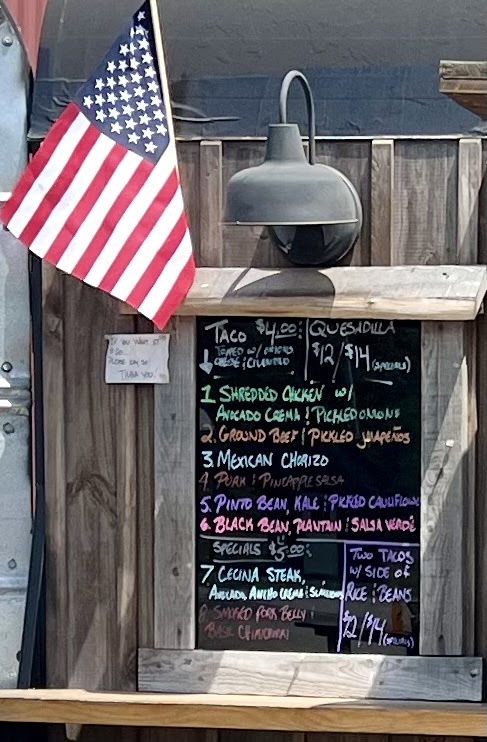 IF YOU WANT IT
TO GO...
PLEASE SAY SO!
THANK YOU!
TACO $4.00:
TOPPED W/ ONIONS
CHEESE & CILANTRO
QUESADILLA
$12/$14 (SPECIALS)
1. SHREDDED CHICKEN W/
AVOCADO CREMA & PICKLED ONIONS
2. GROUND BEEF & PICKLED JALAPEÑOS
3. MEXICAN CHORIZO
4. PORK & PINEAPPLE SALSA
5. PINTO BEAN, KALE & PICKLED CAULIFLOWER
6. BLACK BEAN, PLANTAIN & SALSA VERDE
SPECIALS $5.00:
7. CECINA STEAK,
AVOCADO, ANCHO CREMA & SCALLIONS
8. SMOKED PORK BELLY &
BASIL CHIMICHURRI
TWO TACOS
W/ SIDE OF
RICE & BEANS
$12/$14 (SPECIALS)